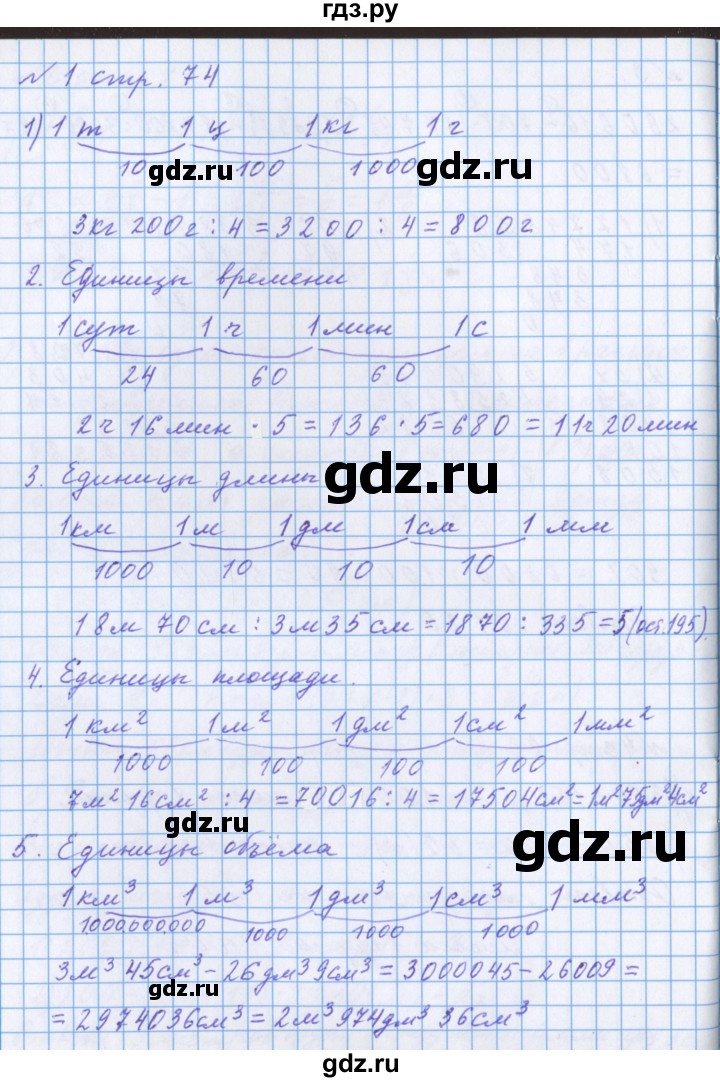 гдз.ру
№ 1 стр. 74
1) 1 т 1 ц 1 кг 1 г
10 100 1000
gdz.ru gdz.ru
3кг 200г : 4 = 3200 : 4 = 800г
2. Единицы времени
1 сут 1 ч 1 мин 1 с
24 60 60
2ч 16 мин · 5 = 136 · 5 = 680 = 11ч 20мин
3. Единицы длины
gdz.ru
1км 1 м 1 дм 1см 1 мм
1000 10 10 10
18м 70см : 3м 35см = 1870 : 335 = 5 (ост.195).
4. Единицы площади.
1 км² 1м² 1дм² 1см² 1мм²
1000 100 100 100
7м² 16см² : 4 = 70016 : 4 = 17504см² = 1м² 75дм² 4см²
gdz.ru gdz.ru
5. Единицы объёма
1км³ 1 м³ 1дм³ 1см³ 1 мм³
1000.000.000 1000 1000 1000
3м³ 45см³ - 26дм³ 9см³ = 3000045 - 26009 =
gdz.ru
= 2974036см³ = 2м³ 974дм³ 36см³
gdz.ru